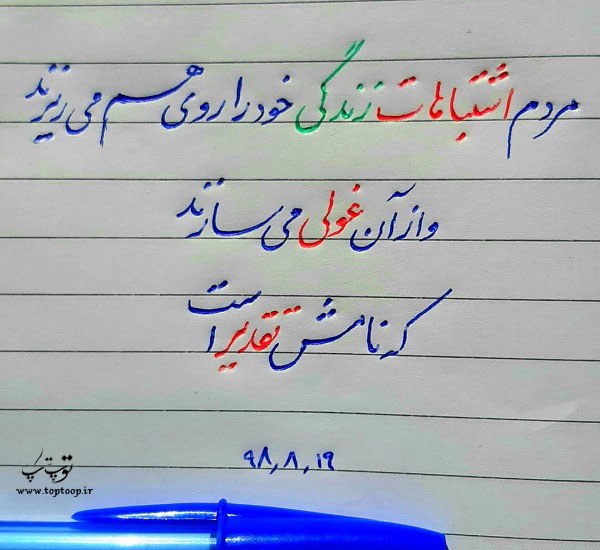 مردم اشتباهات زندگی خود را روی هم می ریزند
و از آن غولی می سازند
که نامش تقدیر است
۹۸٫۸٫۱۹
توپ تاپ
www.toptoop.ir